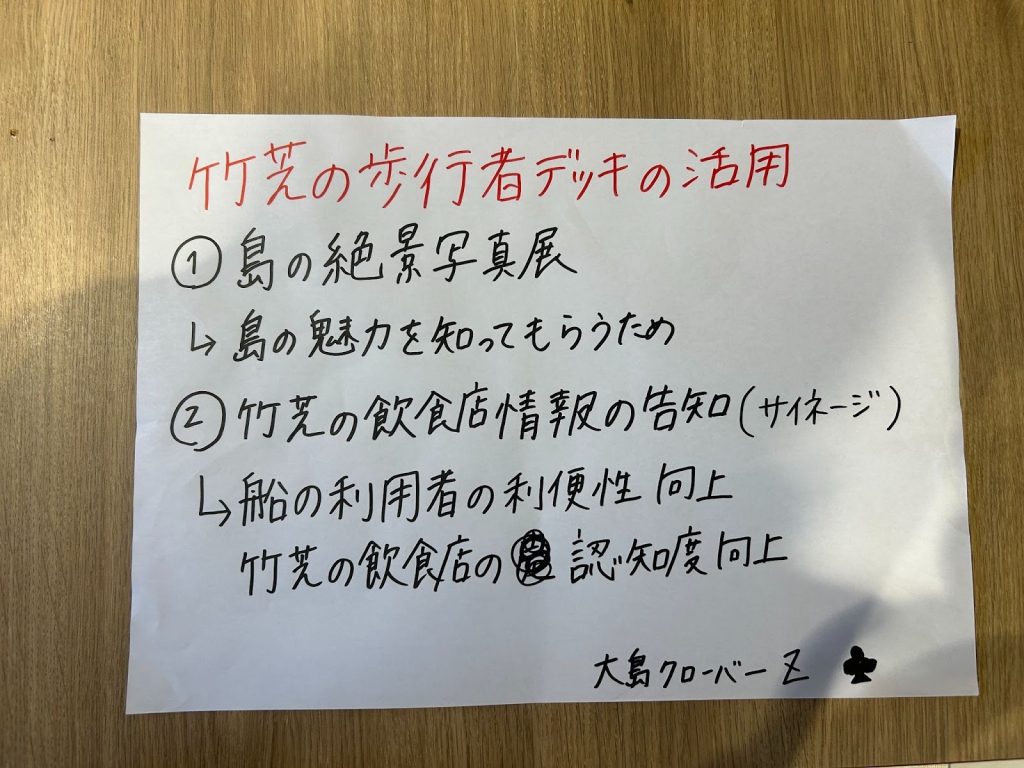 竹芝の歩行者デッキの活用
① 島の絶景写真展
↳ 島の魅力を知ってもらうため
② 竹芝の飲食店情報の告知(サイネージ)
↳ 船の利用者の利便性向上
竹芝の飲食店の認知度向上
大島クローバーZ ♣